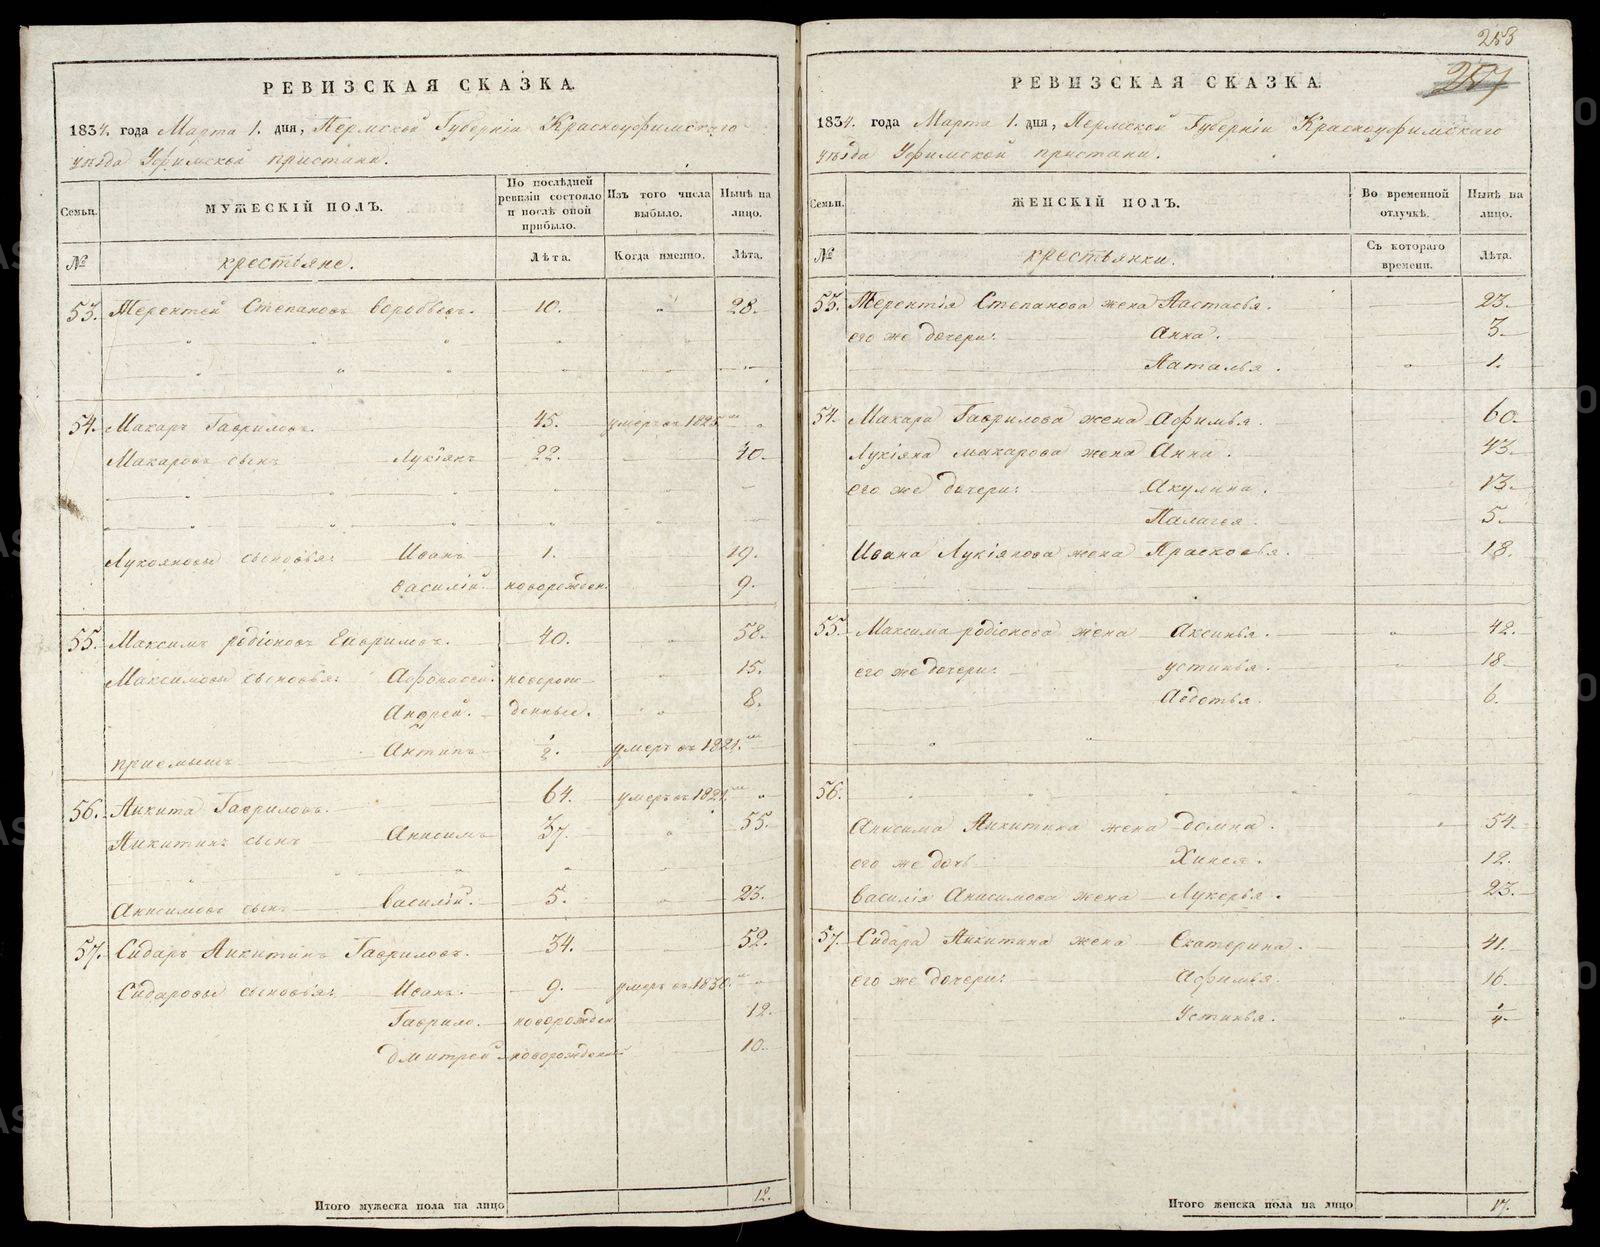 253
257
РЕВИЗСКАЯ СКАЗКА.
1834. года Марта 1. дня, Пермской Губерніи Красноуфимскаго
уѣзда Уфимской пристани.
Семьи. МУЖЕСКІЙ ПОЛЪ. По послѣдней ревизіи состояло и послѣ оной прибыло. Изъ того числа выбыло. Нынѣ на лицо.
№ крестьяне. Лѣта. Когда именно. Лѣта.
53. Терентей Степановъ Воробьевъ. 10. " 28.
54. Макаръ Гавриловъ. 45. умеръ въ 1825мъ "
Макаровъ сынъ Лукіянъ 22. 40.
Лукояновы сыновья: Иванъ 1. 19.
Василій. новорожден. 9.
55. Максимъ родіоновъ Гавриловъ. 40. " 58.
Максимовы сыновья: Афонасей. новорож- 15.
Андрей. денные. " 8.
приемышъ Антипъ 1/2. умеръ въ 1821.мъ
56. Никита Гавриловъ. 64. умеръ въ 1821.мъ "
Никитинъ сынъ Анисимъ 37. " 55.
Анисимовъ сынъ Василій. 5. " 23.
57. Сидаръ Никитинъ Гавриловъ. 34. 52.
Сидаровы сыновья: Иванъ. 9. умеръ въ 1830.мъ "
Гаврило. новорожден 12.
Дмитрей новорожденый 10.
Итого мужеска пола на лицо 12.
РЕВИЗСКАЯ СКАЗКА.
1834. года Марта 1. дня, Пермской Губерніи Красноуфимскаго
уѣзда Уфимской пристани.
Семьи. ЖЕНСКІЙ ПОЛЪ. Во временной отлучкѣ. Нынѣ на лицо.
№ крестьянки. Съ котораго времени. Лѣта.
53. Терентія Степанова жена Настасья. 23.
его же дочери: Анна. 3.
Наталья. " 1.
54. Макара Гаврилова жена Афимья. 60.
Лукіяна Макарова жена Анна. 43.
его же дочери: Акулина. 13.
Палагея. 5.
Ивана Лукіянова жена Прасковья. 18.
55. Максима родіонова жена Аксинья. " 42.
его же дочери: Устинья. " 18.
Авдотья. 6.
56.
Анисима Никитина жена Домна. " 54.
его же дочь Хинея. 12.
Василія Анисимова жена Лукерья. 23.
57. Сидара Никитина жена Екатерина. 41.
его же дочери: Афимья. 16.
Устинья. " 1/4.
Итого женска пола на лицо 17.
METRIKI.GASO-URAL.RU